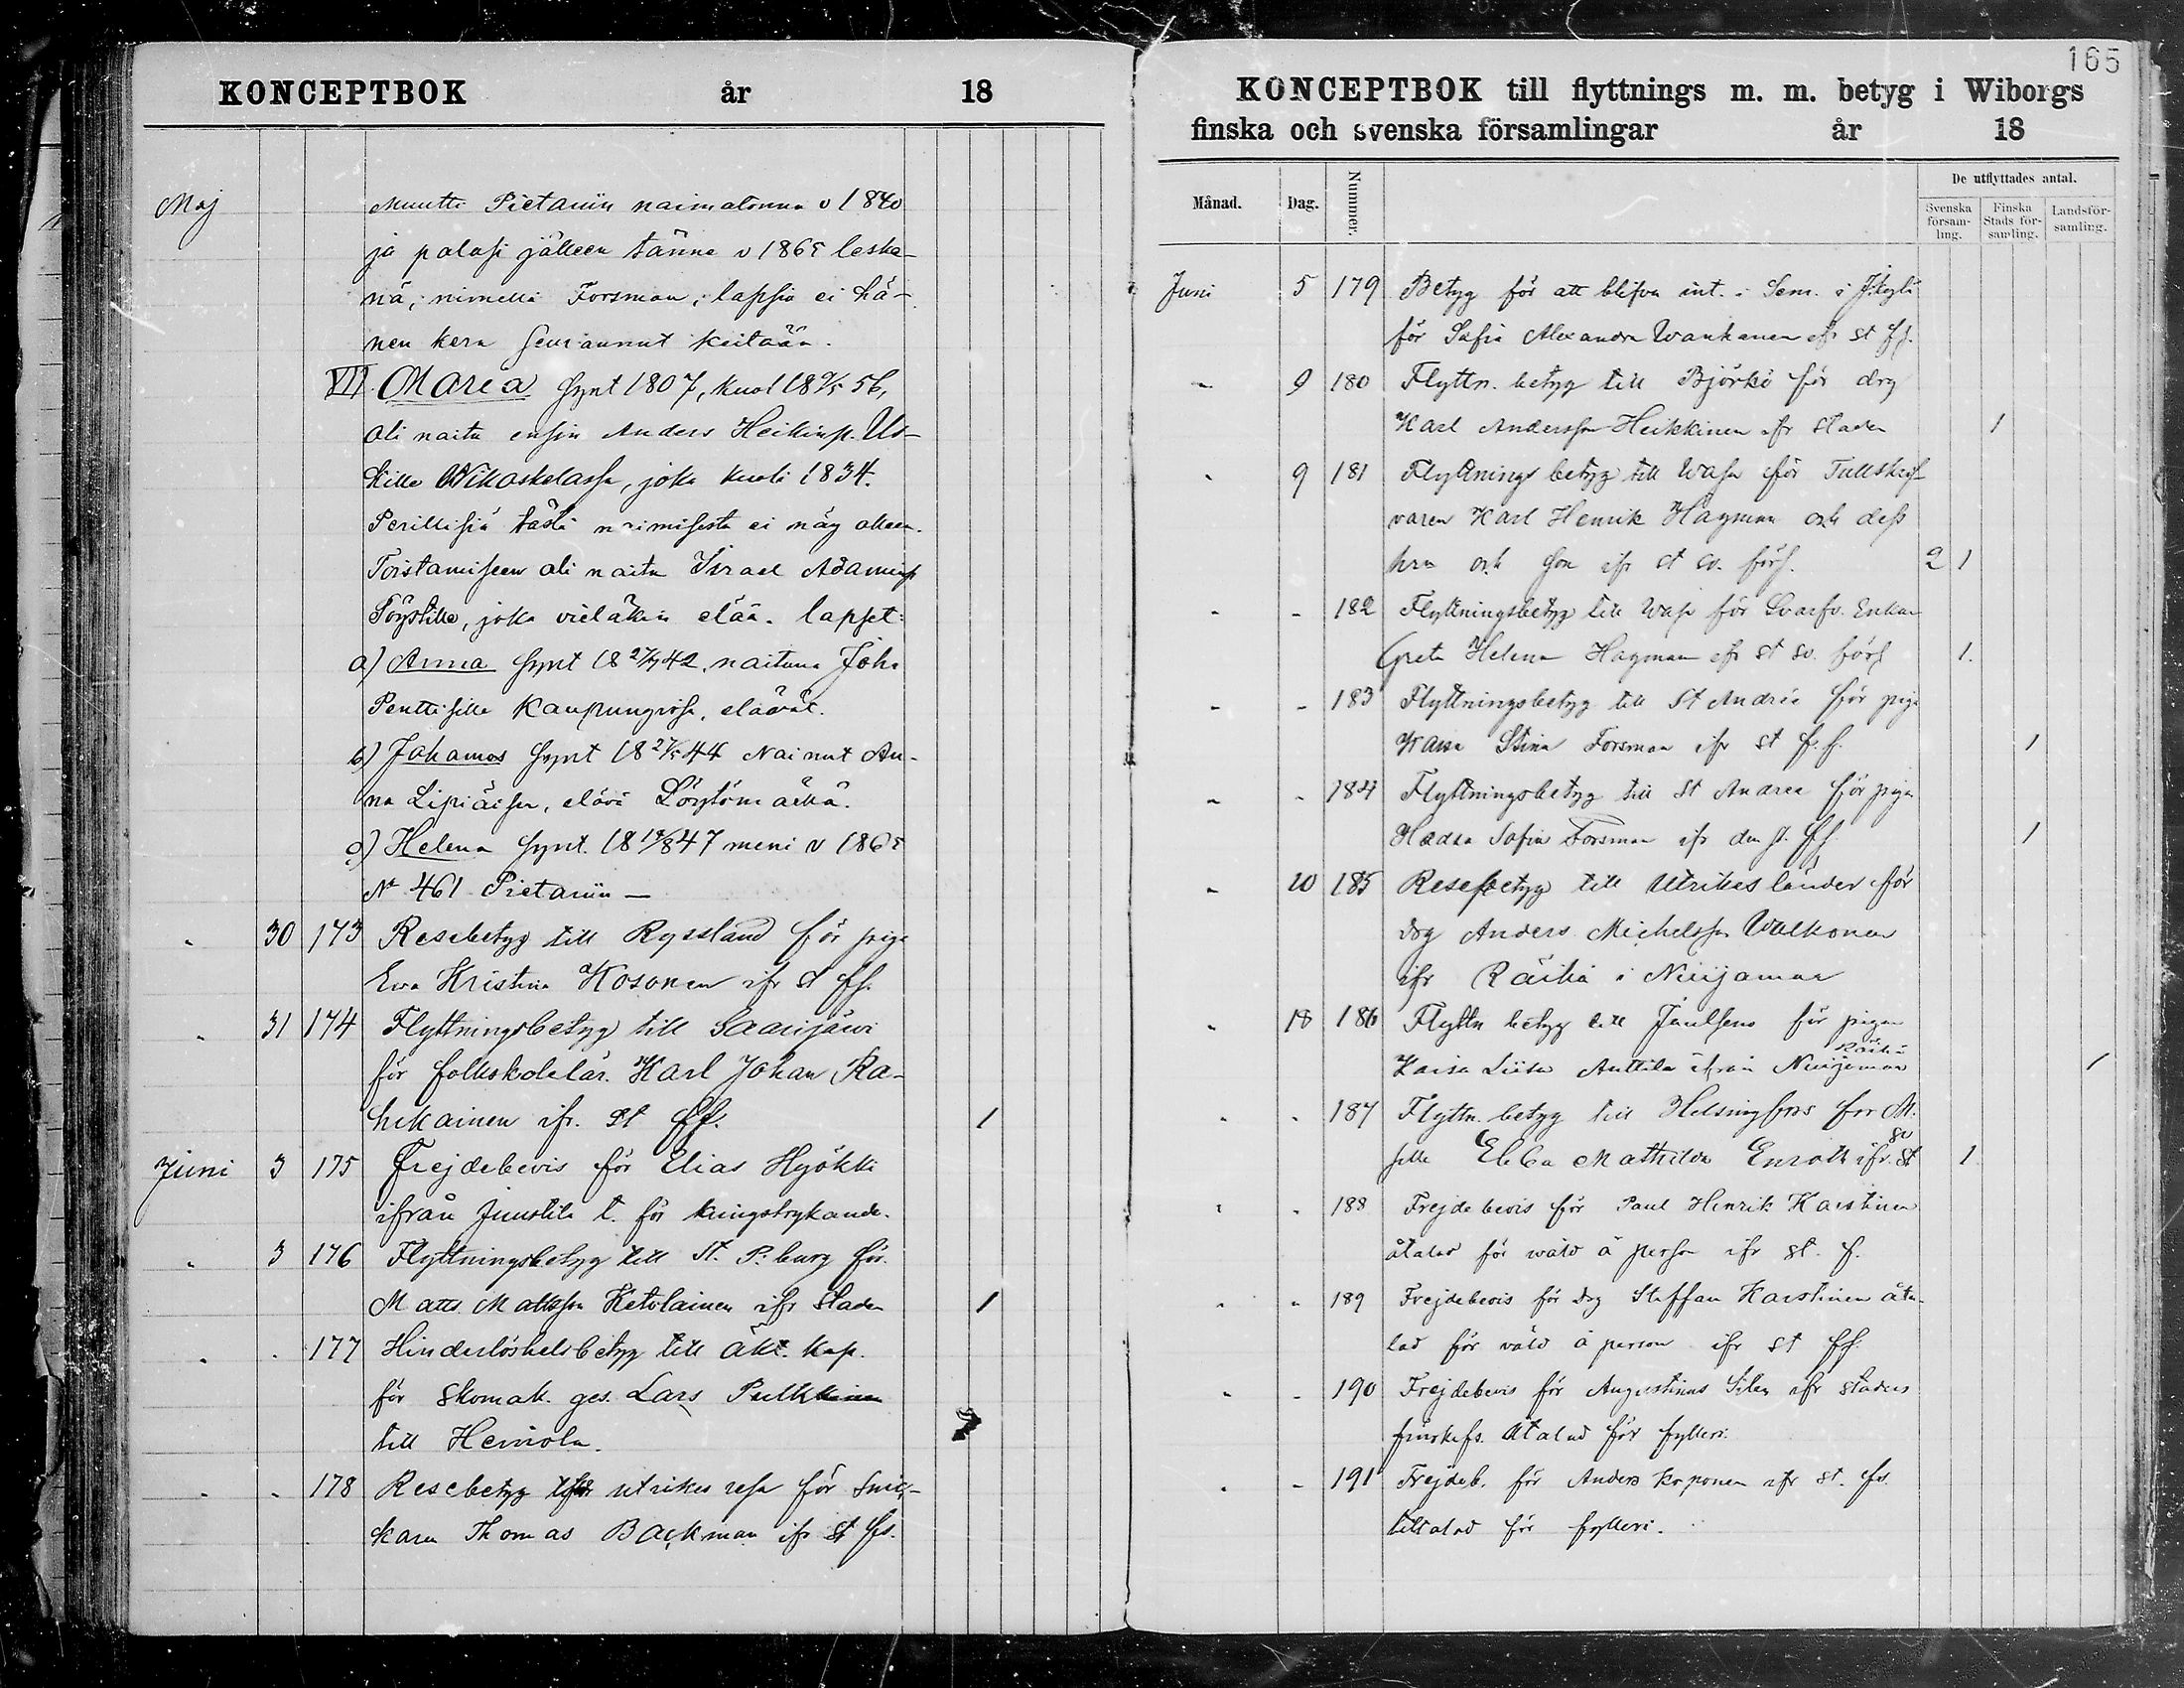 KONCEPTBOK år 18
Maj Muutti Pietariin naimatonna v 1840
ja palasi jälleen tänne v 1865 leske-
nä, nimellä Forsman, lapsia ei hä-
nen kera seurannut keitään.
VII. Marea synt 1807, kuol 18 56,
oli naitu ensin Anders Heikinp. Us-
kille Wikaskelassa, joka kuoli 1834.
Perillisiä tästä naimisesta ei näy olleen.
Toistamiseen oli naitu Israel Adaminp
Pöystille, joka vieläkin elää. lapset:
a) Anna synt 18 27/7 42, naituna Joh.
Penttisille Kaupungissa, elävät.
b) Johannes synt 18 27/5 44 Nainut An-
na Lipiäisen, elävä
c) Helena synt. 18 8 47 meni v 1865
No 461 Pietariin —
" 30 173 Resebetyg till Ryssland för piga
Eva Kristina Kosonen ifr st ff.
" 31 174 Flyttningsbetyg till Saarijärvi
för folkskolelär. Karl Johan Ra-
hikainen ifr. st ff. 1
Juni 3 175 Frejdebevis för Elias Hyökki
ifrån Juustila t. för kungstrykande.
" 3 176 Flyttningsbetyg till St. P:burg för
Matts Mattsson Ketolainen ifr staden 1
" " 177 Hinderlöshetsbetyg till äkt. kap.
för skomak. ges. Lars Pulkkinen
till Heinola.
" " 178 Resebetyg för utrikes resa för snic-
karen Thomas Backman ifr st fs.
165
KONCEPTBOK till flyttnings m. m. betyg i Wiborgs
finska och svenska församlingar år 18
Månad. Dag. Nummer. De utflyttades antal.
Svenska försam-ling. Finska Stads för-samling. Landsför-samling.
Juni 5 179 Betyg för att blifva int. i Sem. i J:kylä
för Sofia Alexandra Wankanen ifr st ff.
" 9 180 Flyttn. betyg till Björkö för drg
Karl Andersson Heikkinen ifr staden 1
" 9 181 Flyttnings betyg till Wasa för Tullskrif-
varen Karl Henrik Hagman och dess
hru och son ifr st sv. förs. 2 1
" " 182 Flyttningsbetyg till Wasa för Svarfv. Enkan
Greta Helena Hagman ifr st sv. förs 1.
" " 183 Flyttningsbetyg till St Andreæ för piga
Kaisa Stina Forsman ifr st f.f. 1
" " 184 Flyttningsbetyg till St Andreæ för pigan
Hedda Sofia Forsman ifr den st. ff. 1
" 10 185 Resebetyg till Utrikes länder för
drg Anders Michelsson Walkonen
ifr Räihä i Nuijamaa
" 18 186 Flyttn betyg till Jäülsens för pigan
Kaisa Liisa Anttila ifrån Räihä Nuijamaa 1
" " 187 Flyttn. betyg till Helsingfors för M.
selle Ebba Mathilda Enroth ifr. st sv 1
" " 188 Frejdebevis för Paul Henrik Karstinen
åtalad för wåld å person ifr st. f.
" " 189 Frejdebevis för drg Staffan Karstinen åta-
lad för våld å person ifr st ff.
" " 190 Frejdebevis för Augustinus Silen ifr stadens
finskafs. åtalad för fylleri.
" " 191 Frejdeb. för Anders Koponen ifr st. fs.
tilltalad för fylleri.